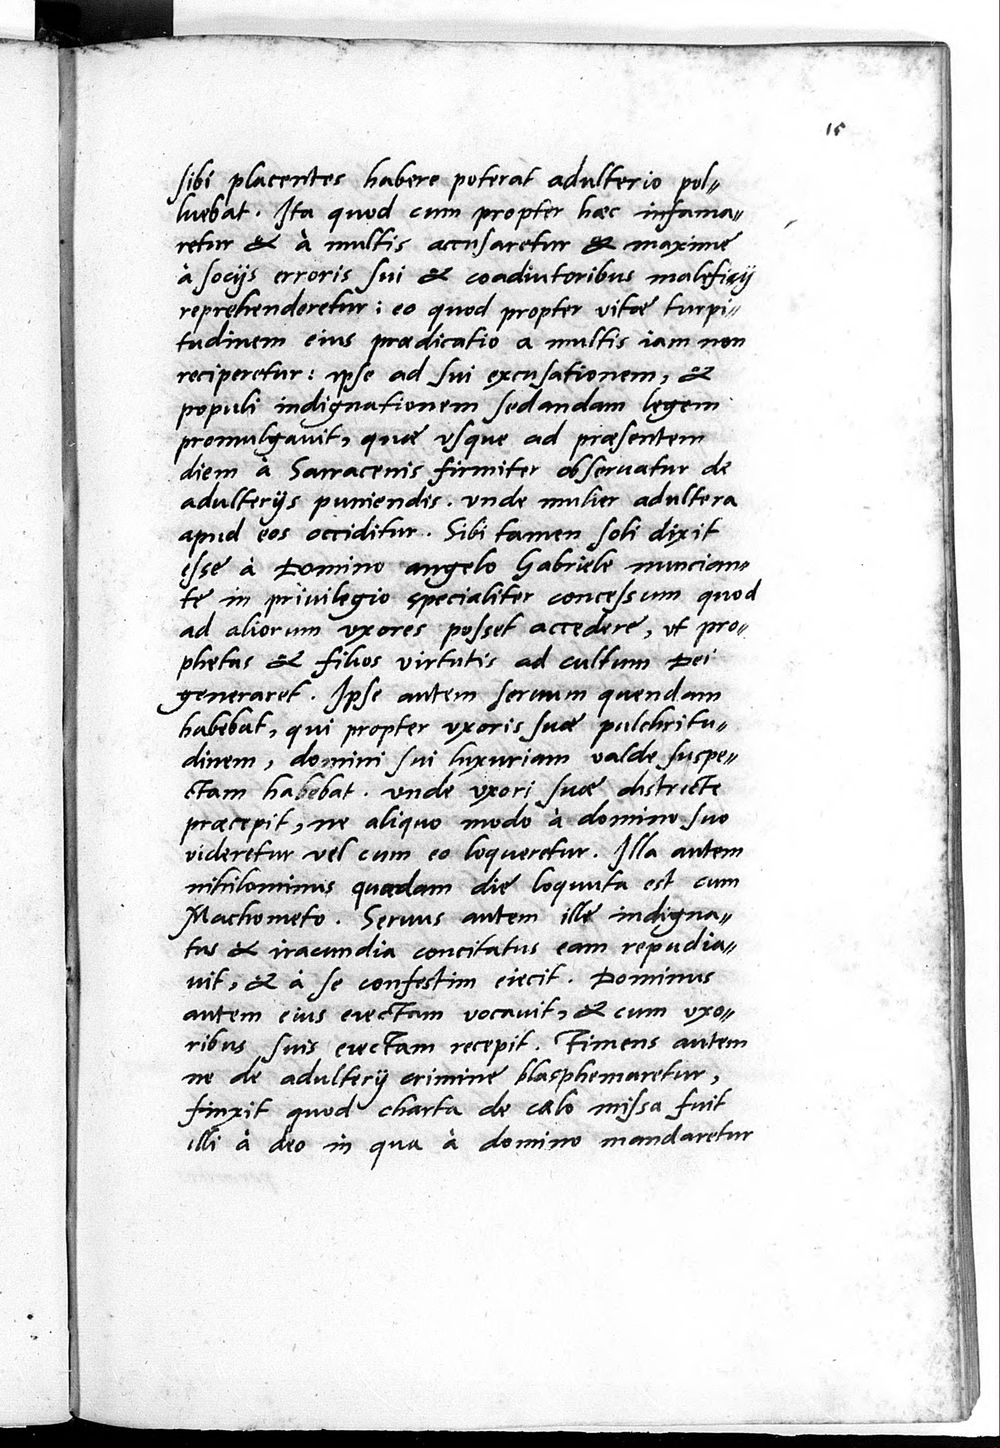 15
sibi placentes habere poterat adulterio pol„
luebat. Ita quod cum propter hæc infama„
retur & à multis accusaretur & maxime
à socijs erroris sui & coadiutoribus maleficij
reprehenderetur: eo quod propter vitæ turpi„
tudinem eius prædicatio a multis iam non
reciperetur: ipse ad sui excusationem, &
populi indignationem sedandam legem
promulgauit, quæ vsque ad præsentem
diem à Sarracenis firmiter obseruatur de
adulterijs puniendis. vnde mulier adultera
apud eos occiditur. Sibi tamen soli dixit
esse à Domino angelo Gabriele nuncian„
te in priuilegio specialiter concessum quod
ad aliorum vxores posset accedere, vt pro„
phetas & filios virtutis ad cultum Dei
generaret. Ipse autem seruum quendam
habebat, qui propter vxoris suæ pulchritu„
dinem, domini sui luxuriam valde suspe„
ctam habebat. vnde vxori suæ districte
præcepit, ne aliquo modo à domino suo
videretur vel cum eo loqueretur. Illa autem
nihilominus quadam die loquuta est cum
Machometo. Seruus autem ille indigna„
tus & iracundia concitatus eam repudia„
uit, & à se confestim eiecit. Dominus
autem eius eiectam vocauit, & cum vxo„
ribus suis eiectam recepit. Timens autem
ne de adulterij crimine blasphemaretur,
finxit quod charta de cælo missa fuit
illi à deo in qua à domino mandaretur